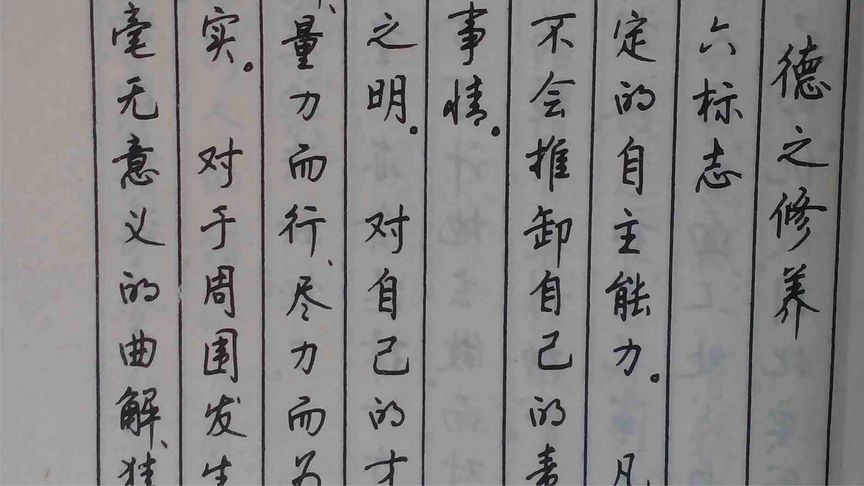 德之修养
六标志
定的自主能力。凡
不会推卸自己的责
事情。
之明。对自己的才
量力而行、尽力而为
实。对于周围发生
毫无意义的曲解、猜